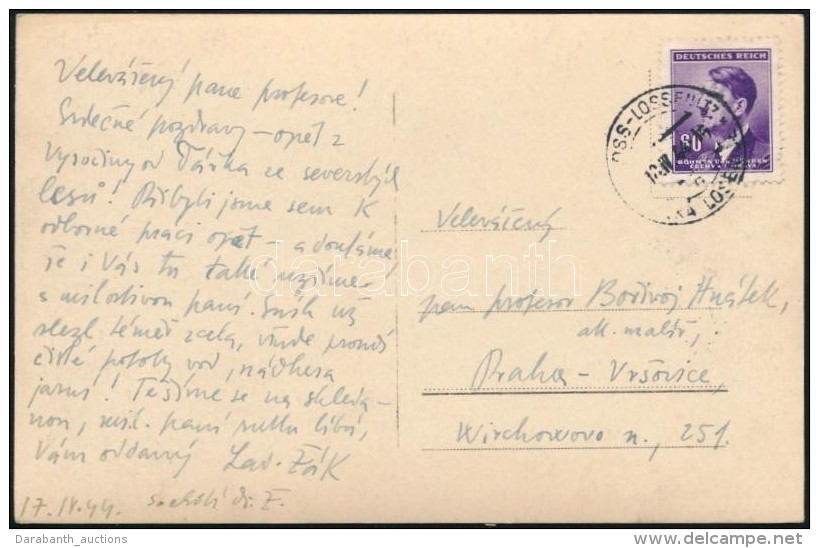 Velevážený pane profesore!
Srdečné pozdravy – opět z
Vysočiny od Žďárka ze severských
lesů! Přibyli jsme sem k
odborné práci opět – a doufáme
že i Vás tu také uzříme
s milostivou paní. Sníh už
slezl téměř zcela, všude proudí
čisté potoky vod, nádhera
jarní! Těšíme se na shleda-
nou, mil. paní ruku líbá,
Vám oddaný Lad. Žák
17. IV. 44.
DEUTSCHES REICH
60
BÖHMEN UND MÄHREN
ČECHY A MORAVA
Velevážený
pan profesor Bořivoj Hnátek,
ak. malíř,
Praha – Vršovice,
Wirchowovo n., 251.
darabanth
Darabanth_auctions
http://www.delcampe.net